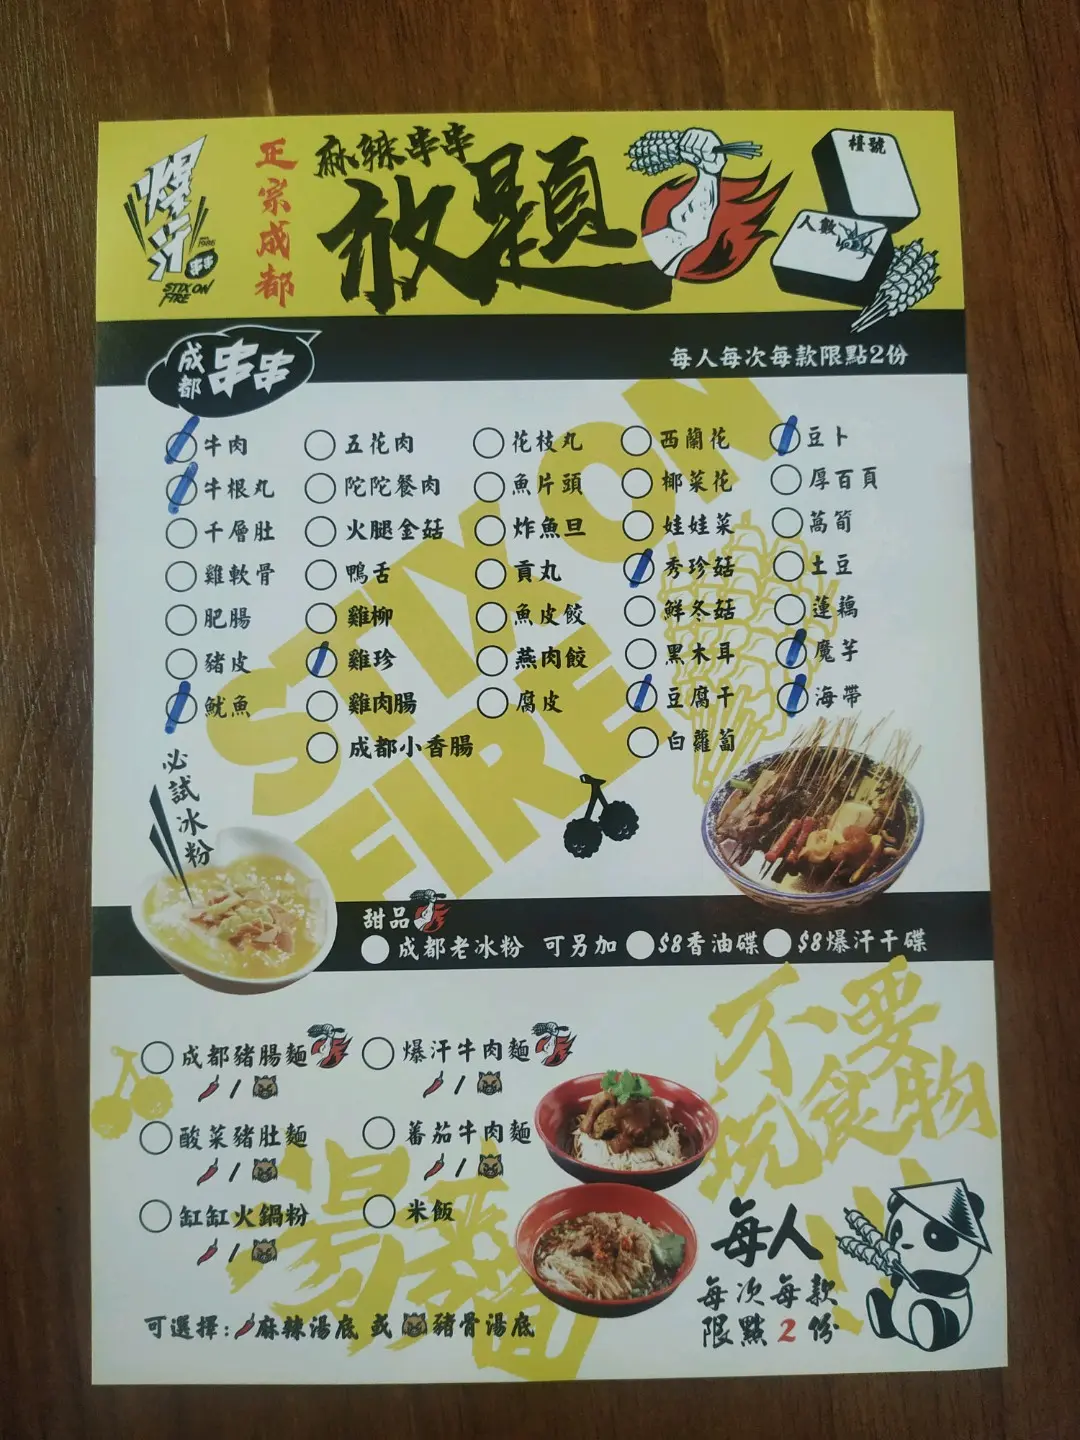 爆汗
串串
STIX ON
FIRE
正宗成都
麻辣串串
放題
檯號
人數
成都
串串
每人每次每款限點2份
牛肉 五花肉 花枝丸 西蘭花 豆卜
牛根丸 陀陀餐肉 魚片頭 椰菜花 厚百頁
千層肚 火腿金菇 炸魚旦 娃娃菜 萵筍
雞軟骨 鴨舌 貢丸 秀珍菇 土豆
肥腸 雞柳 魚皮餃 鮮冬菇 蓮藕
豬皮 雞珍 燕肉餃 黑木耳 魔芋
魷魚 雞肉腸 腐皮 豆腐干 海帶
成都小香腸 白蘿蔔
STIX ON
FIRE
必試冰粉
甜品
成都老冰粉 可另加 $8香油碟 $8爆汗干碟
成都豬腸麵 爆汗牛肉麵
/ /
酸菜豬肚麵 蕃茄牛肉麵
/ /
缸缸火鍋粉 米飯
/
湯麵
可選擇: 麻辣湯底 或 豬骨湯底
不要
玩食物
每人
每次每款
限點2份